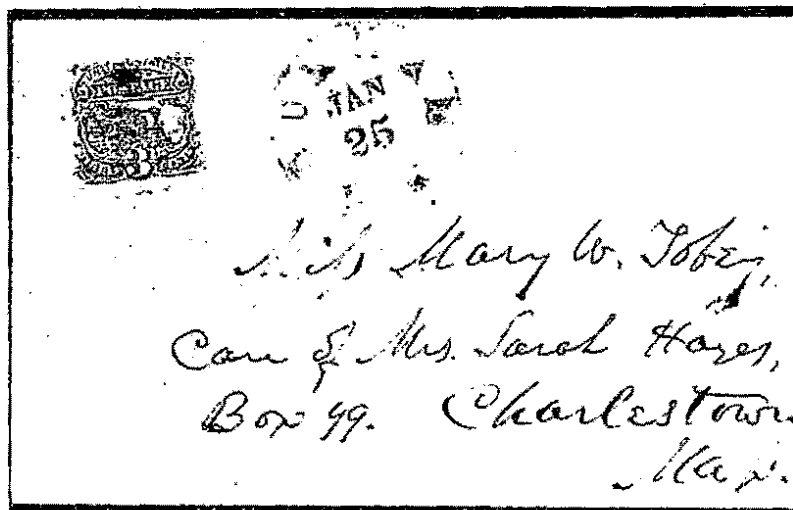 JAN
25
3
Miss Mary W. Tobey,
Care of Mrs. Sarah Hayes,
Box 99. Charlestown
Mass.